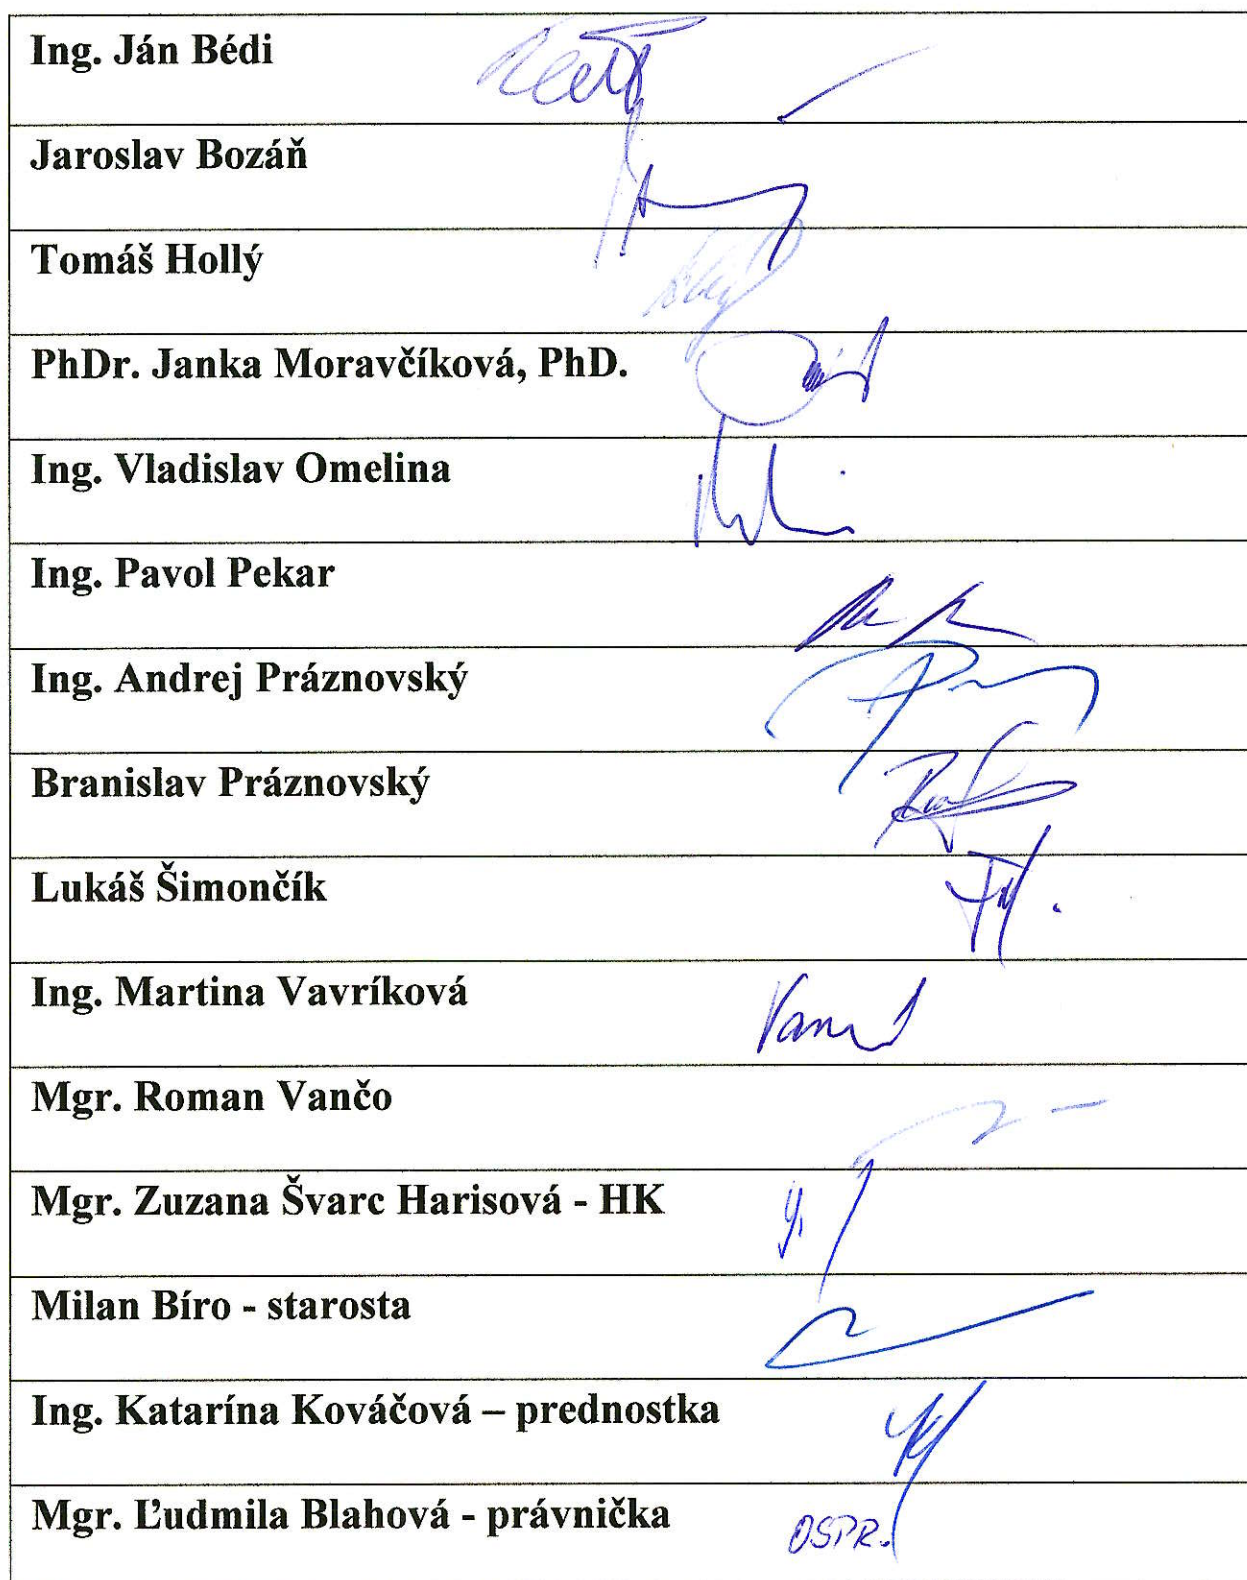 Ing. Ján Bédi
Jaroslav Bozáň
Tomáš Hollý
PhDr. Janka Moravčíková, PhD.
Ing. Vladislav Omelina
Ing. Pavol Pekar
Ing. Andrej Práznovský
Branislav Práznovský
Lukáš Šimončík
Ing. Martina Vavríková
Mgr. Roman Vančo
Mgr. Zuzana Švarc Harisová - HK
Milan Bíro - starosta
Ing. Katarína Kováčová – prednostka
Mgr. Ľudmila Blahová - právnička OSPR.